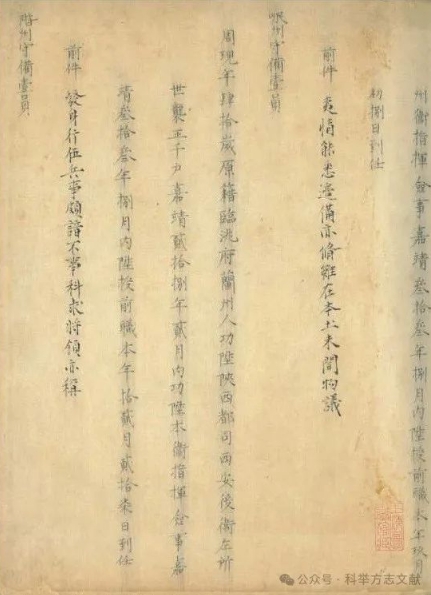 州衛指揮僉事嘉靖叁拾叁年捌月內陞授前職本年玖月
初捌日到任
前件夷情能悉邊備亦脩雖在本土未聞物議
岷州守備壹員
周現年肆拾歲原籍臨洮府蘭州人功陞陝西都司西安後衛左所
世襲正千戶嘉靖貳拾捌年貳月內功陞本衛指揮僉事嘉
靖叁拾叁年捌月內陞授前職本年拾貳月貳拾柒日到任
前件發身行伍兵事頗諳不事科求將領亦稱
階州守備壹員
公众号·科举方志文献